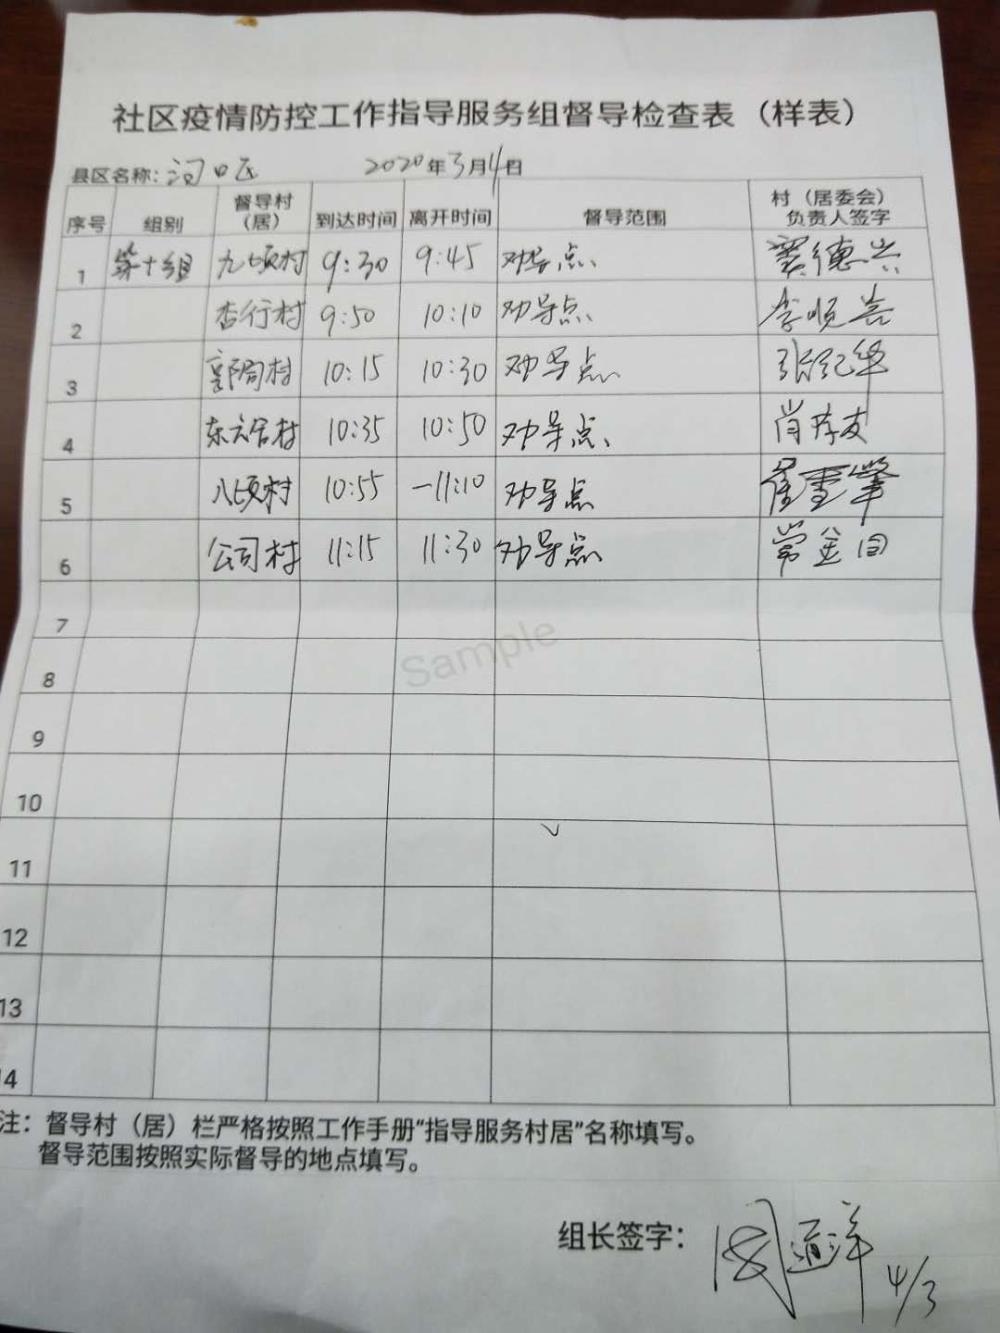 社区疫情防控工作指导服务组督导检查表（样表）
县区名称：河口区 2020年3月4日
序号 组别 督导村（居） 到达时间 离开时间 督导范围 村（居委会）负责人签字
1 第十组 九顷村 9:30 9:45 劝导点 窦德兴
2 杏行村 9:50 10:10 劝导点 李顺岩
3 郭局村 10:15 10:30 劝导点 张纪华
4 东六合村 10:35 10:50 劝导点 肖存友
5 八顷村 10:55 -11:10 劝导点
6 公司村 11:15 11:30 劝导点 常金回
7
Sample
8
9
10
11
12
13
14
注：督导村（居）栏严格按照工作手册“指导服务村居”名称填写。
督导范围按照实际督导的地点填写。
组长签字：
4/3